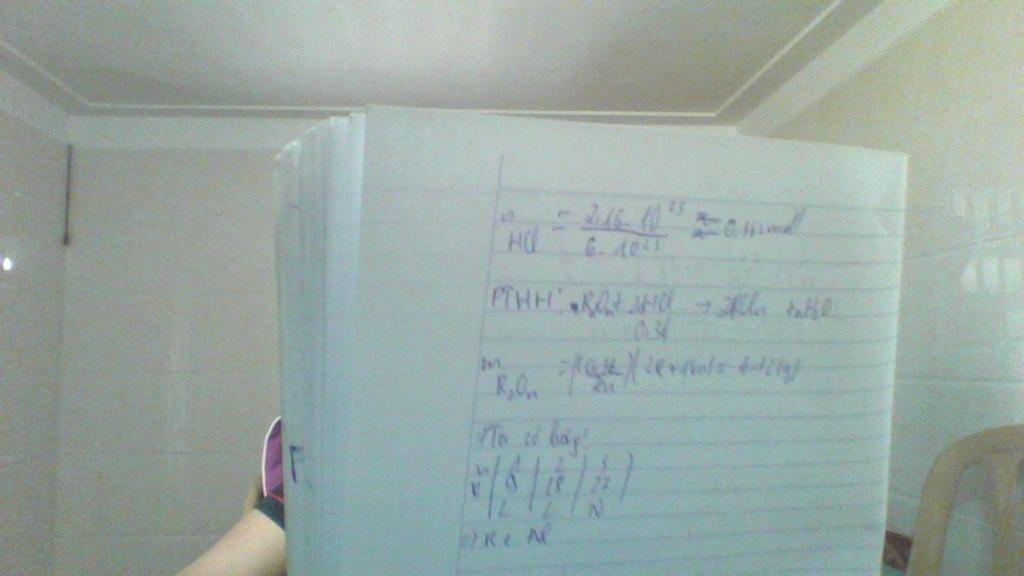 n HCl = 2,16.10^23 / 6.10^23 = 0,36 mol
PTHH: R2On + 2nHCl → 2RCln + nH2O
0,36
m R2On = (0,36/2n)(2R+16n) = 6,12(g)
Ta có bảng:
n | 1 | 2 | 3 |
R | 9 | 18 | 27 |
L L N
=> R là Al